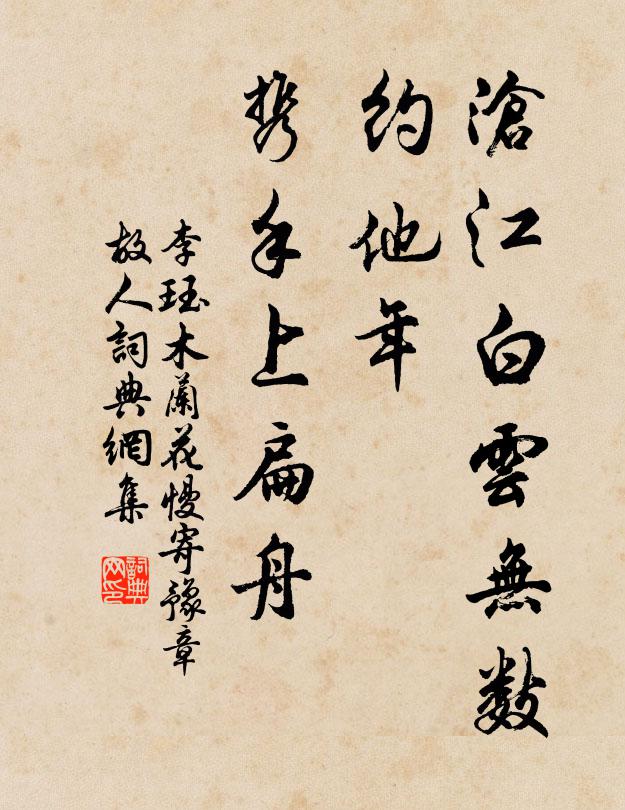 滄江白雲無数
約他年
携手上扁舟
李珏木蘭花慢寄豫章
故人詞典網集
詞典
网印